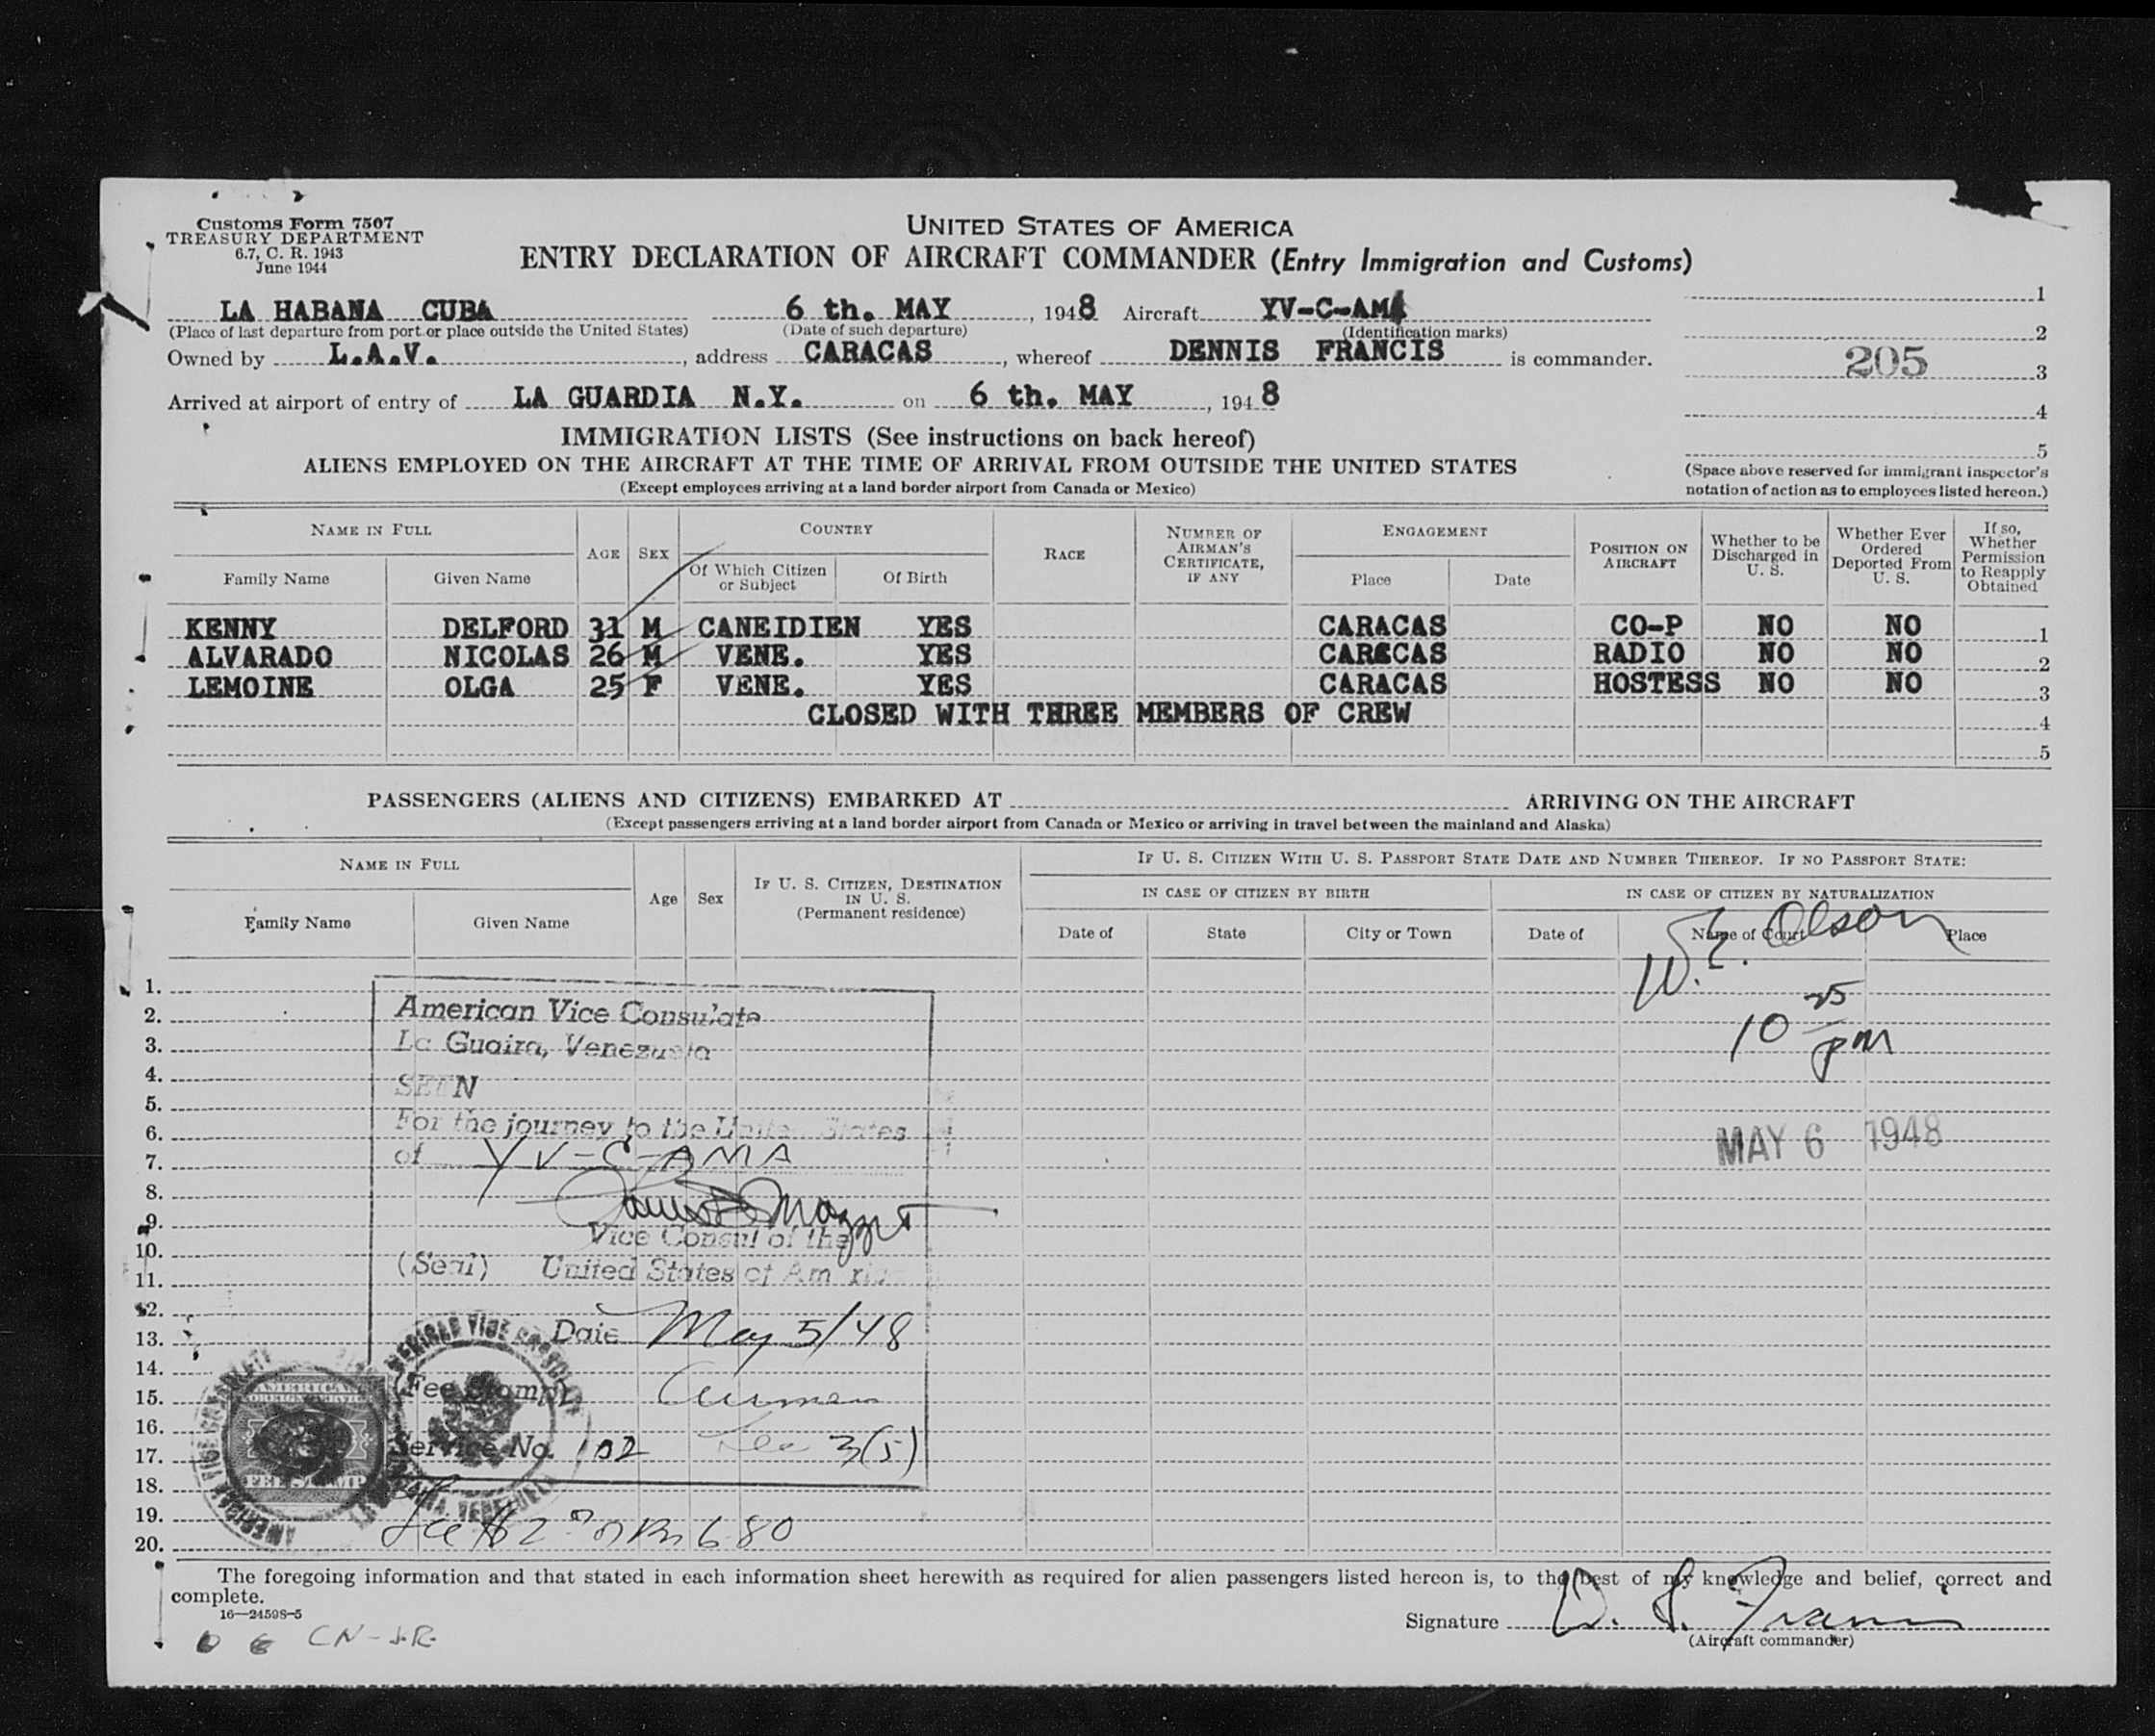 Customs Form 7507
TREASURY DEPARTMENT
6.7, C. R. 1943
June 1944
UNITED STATES OF AMERICA
ENTRY DECLARATION OF AIRCRAFT COMMANDER (Entry Immigration and Customs)
LA HABANA CUBA 6 th. MAY , 1948 Aircraft YV-C-AMA 1
(Place of last departure from port or place outside the United States) (Date of such departure) (Identification marks) 2
Owned by L.A.V. , address CARACAS , whereof DENNIS FRANCIS is commander.
205 3
Arrived at airport of entry of LA GUARDIA N.Y. on 6 th. MAY , 1948
4
IMMIGRATION LISTS (See instructions on back hereof)
5
ALIENS EMPLOYED ON THE AIRCRAFT AT THE TIME OF ARRIVAL FROM OUTSIDE THE UNITED STATES
(Except employees arriving at a land border airport from Canada or Mexico)
(Space above reserved for immigrant inspector's
notation of action as to employees listed hereon.)
NAME IN FULL
Family Name Given Name
AGE SEX
COUNTRY
Of Which Citizen or Subject
Of Birth
RACE
NUMBER OF AIRMAN'S CERTIFICATE, IF ANY
ENGAGEMENT
Place Date
POSITION ON AIRCRAFT
Whether to be Discharged in U. S.
Whether Ever Ordered Deported From U. S.
If so, Whether Permission to Reapply Obtained
KENNY DELFORD 31 M CANEIDIEN YES CARACAS CO-P NO NO 1
ALVARADO NICOLAS 26 M VENE. YES CARACAS RADIO NO NO 2
LEMOINE OLGA 25 F VENE. YES CARACAS HOSTESS NO NO 3
CLOSED WITH THREE MEMBERS OF CREW 4
5
PASSENGERS (ALIENS AND CITIZENS) EMBARKED AT ARRIVING ON THE AIRCRAFT
(Except passengers arriving at a land border airport from Canada or Mexico or arriving in travel between the mainland and Alaska)
NAME IN FULL
Family Name Given Name
Age Sex
IF U. S. CITIZEN, DESTINATION
IN U. S.
(Permanent residence)
IF U. S. CITIZEN WITH U. S. PASSPORT STATE DATE AND NUMBER THEREOF. IF NO PASSPORT STATE:
IN CASE OF CITIZEN BY BIRTH IN CASE OF CITIZEN BY NATURALIZATION
Date of State City or Town Date of Name of Court Place
W. E. Olson
10 25 pm
MAY 6 1948
1.
2.
3.
4.
5.
6.
7.
8.
9.
10.
11.
12.
13.
14.
15.
16.
17.
18.
19.
20.
American Vice Consulate
La Guaira, Venezuela
SEEN
For the journey to the United States
of YV-C-AMA
Vice Consul of the
(Seal) United States of America
Date May 5/48
Fee Stamp
Service No. 102 3(5)
AMERICAN
FOREIGN SERVICE
FEE STAMP
AMERICAN VICE CONSULATE
680
The foregoing information and that stated in each information sheet herewith as required for alien passengers listed hereon is, to the best of my knowledge and belief, correct and
complete.
16—24598-5
CN-J.R.
Signature D. L. Francis
(Aircraft commander)